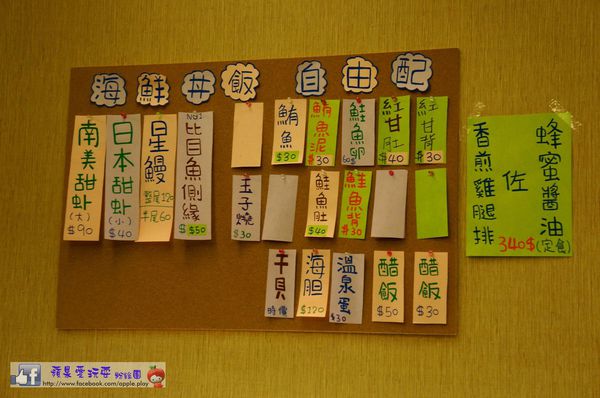 海鮮丼飯 自由配
南美甜虾
(大)
$90
日本甜虾
(小)
$40
星鰻
整尾120
半尾60
NO1
比目魚側緣
$50
鮪魚
$30
鮪魚泥
$30
鮭魚卵
60$
紅甘肚
$40
紅甘背
$30
玉子燒
$30
鮭魚肚
$40
鮭魚背
$30
干貝
時價
海胆
$120
溫泉蛋
$30
醋飯
$50
醋飯
$30
蜂蜜醬油
佐
香煎雞腿排
340$(定食)
蘋果愛玩耍 粉絲團
http://www.facebook.com/apple.play